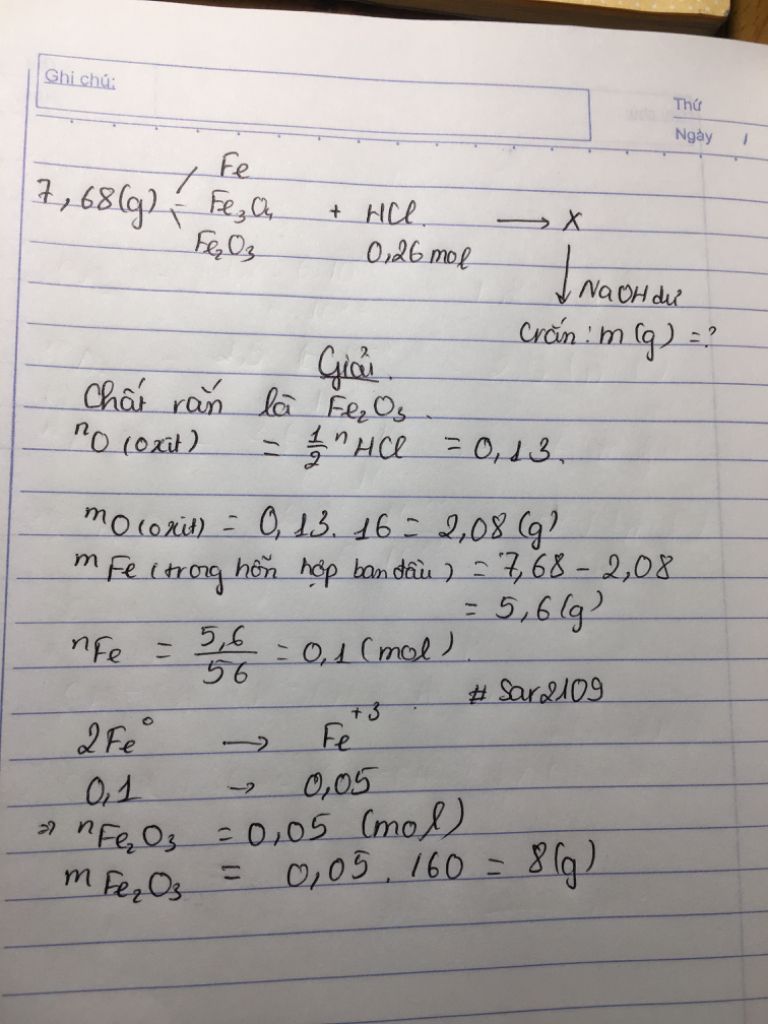 Ghi chú:
Thứ
Ngày /
Fe
7,68(g) Fe₃O₄ + HCl → X
Fe₂O₃ 0,26 mol
↓ NaOH dư
Crắn : m (g) = ?
Giải.
Chất rắn là Fe₂O₃.
nO (oxit) = 1/2 nHCl = 0,13.
mO(oxit) = 0,13. 16 = 2,08 (g)
mFe (trong hỗn hợp ban đầu) = 7,68 - 2,08
= 5,6 (g)
nFe = 5,6/56 = 0,1 (mol)
# Sar2109
2Fe⁰ → Fe⁺³
0,1 → 0,05
⇒ nFe₂O₃ = 0,05 (mol)
mFe₂O₃ = 0,05 . 160 = 8(g)